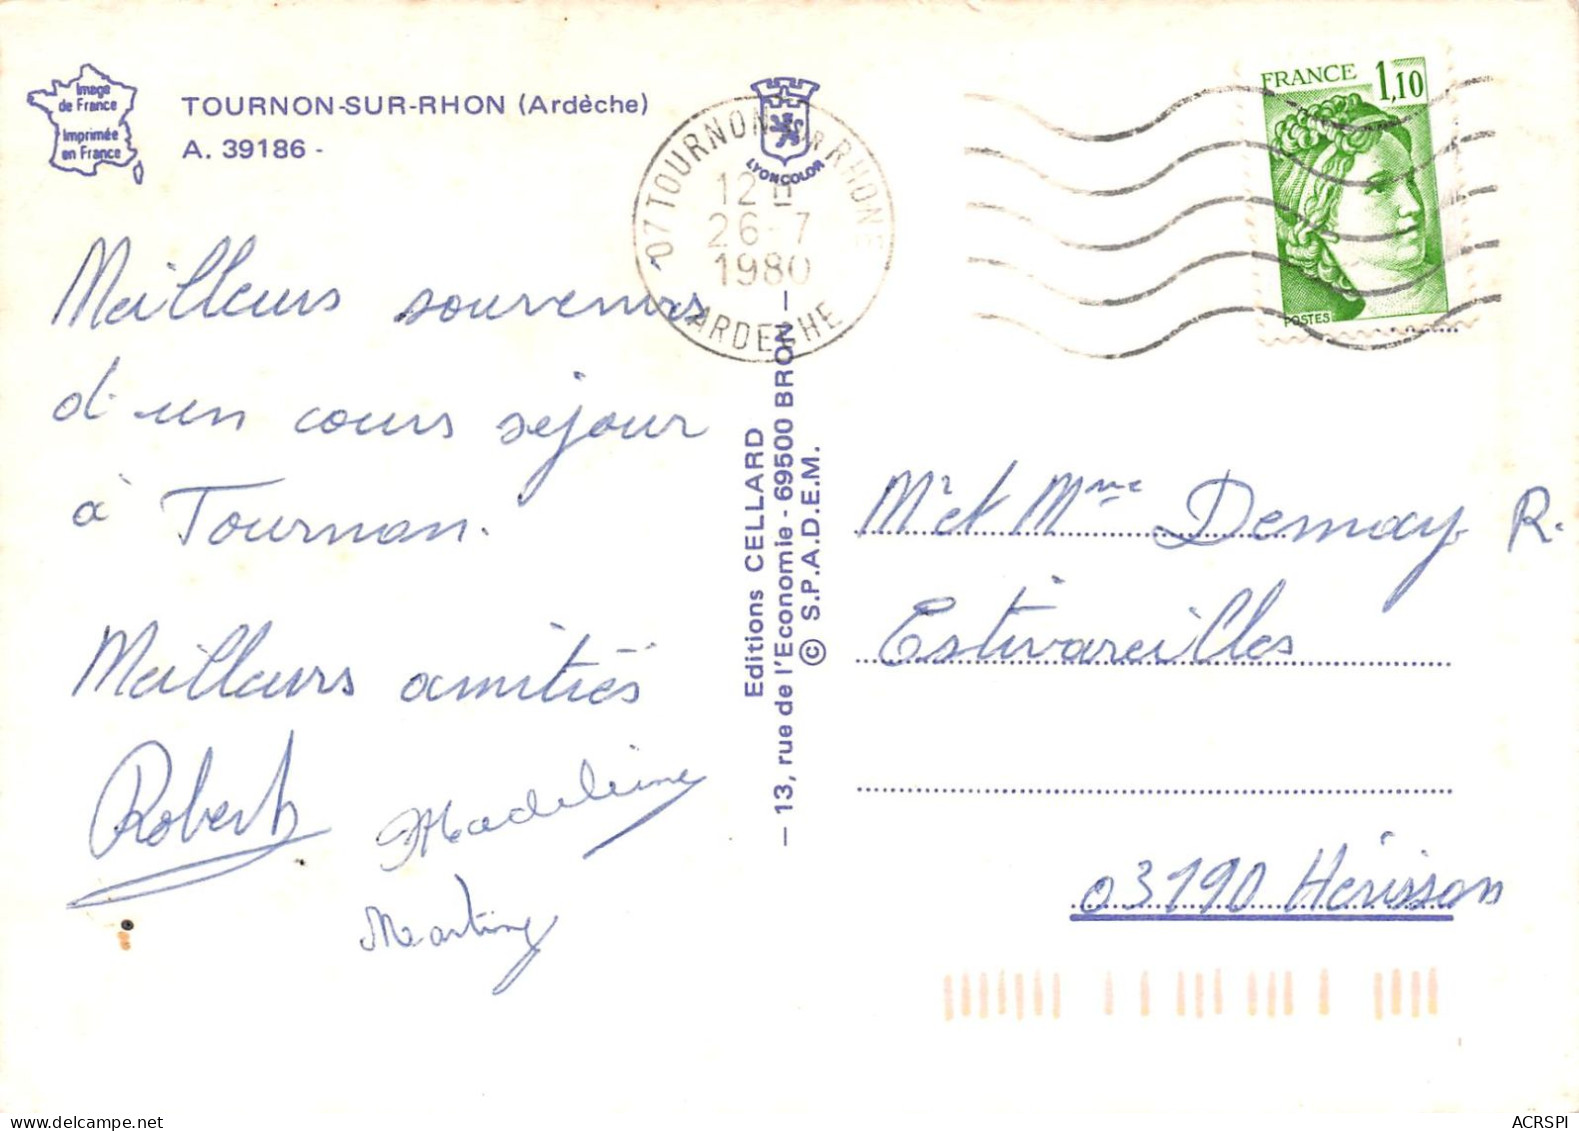 Image
de France
Imprimée
en France
TOURNON-SUR-RHON (Ardèche)
A. 39186 -
LYONCOLOR
07 TOURNON SUR RHONE
12 H
26-7
1980
ARDECHE
FRANCE 1,10
POSTES
Meilleurs souvenirs
d'un cours séjour
à Tournon.
Meilleurs amitiés
Robert
Madeleine
Martine
Editions CELLARD
— 13, rue de l'Economie - 69500 BRON —
© S.P.A.D.E.M.
Mr et Mme Demay R.
Estivareilles
03190 Hérisson
ACRSPI